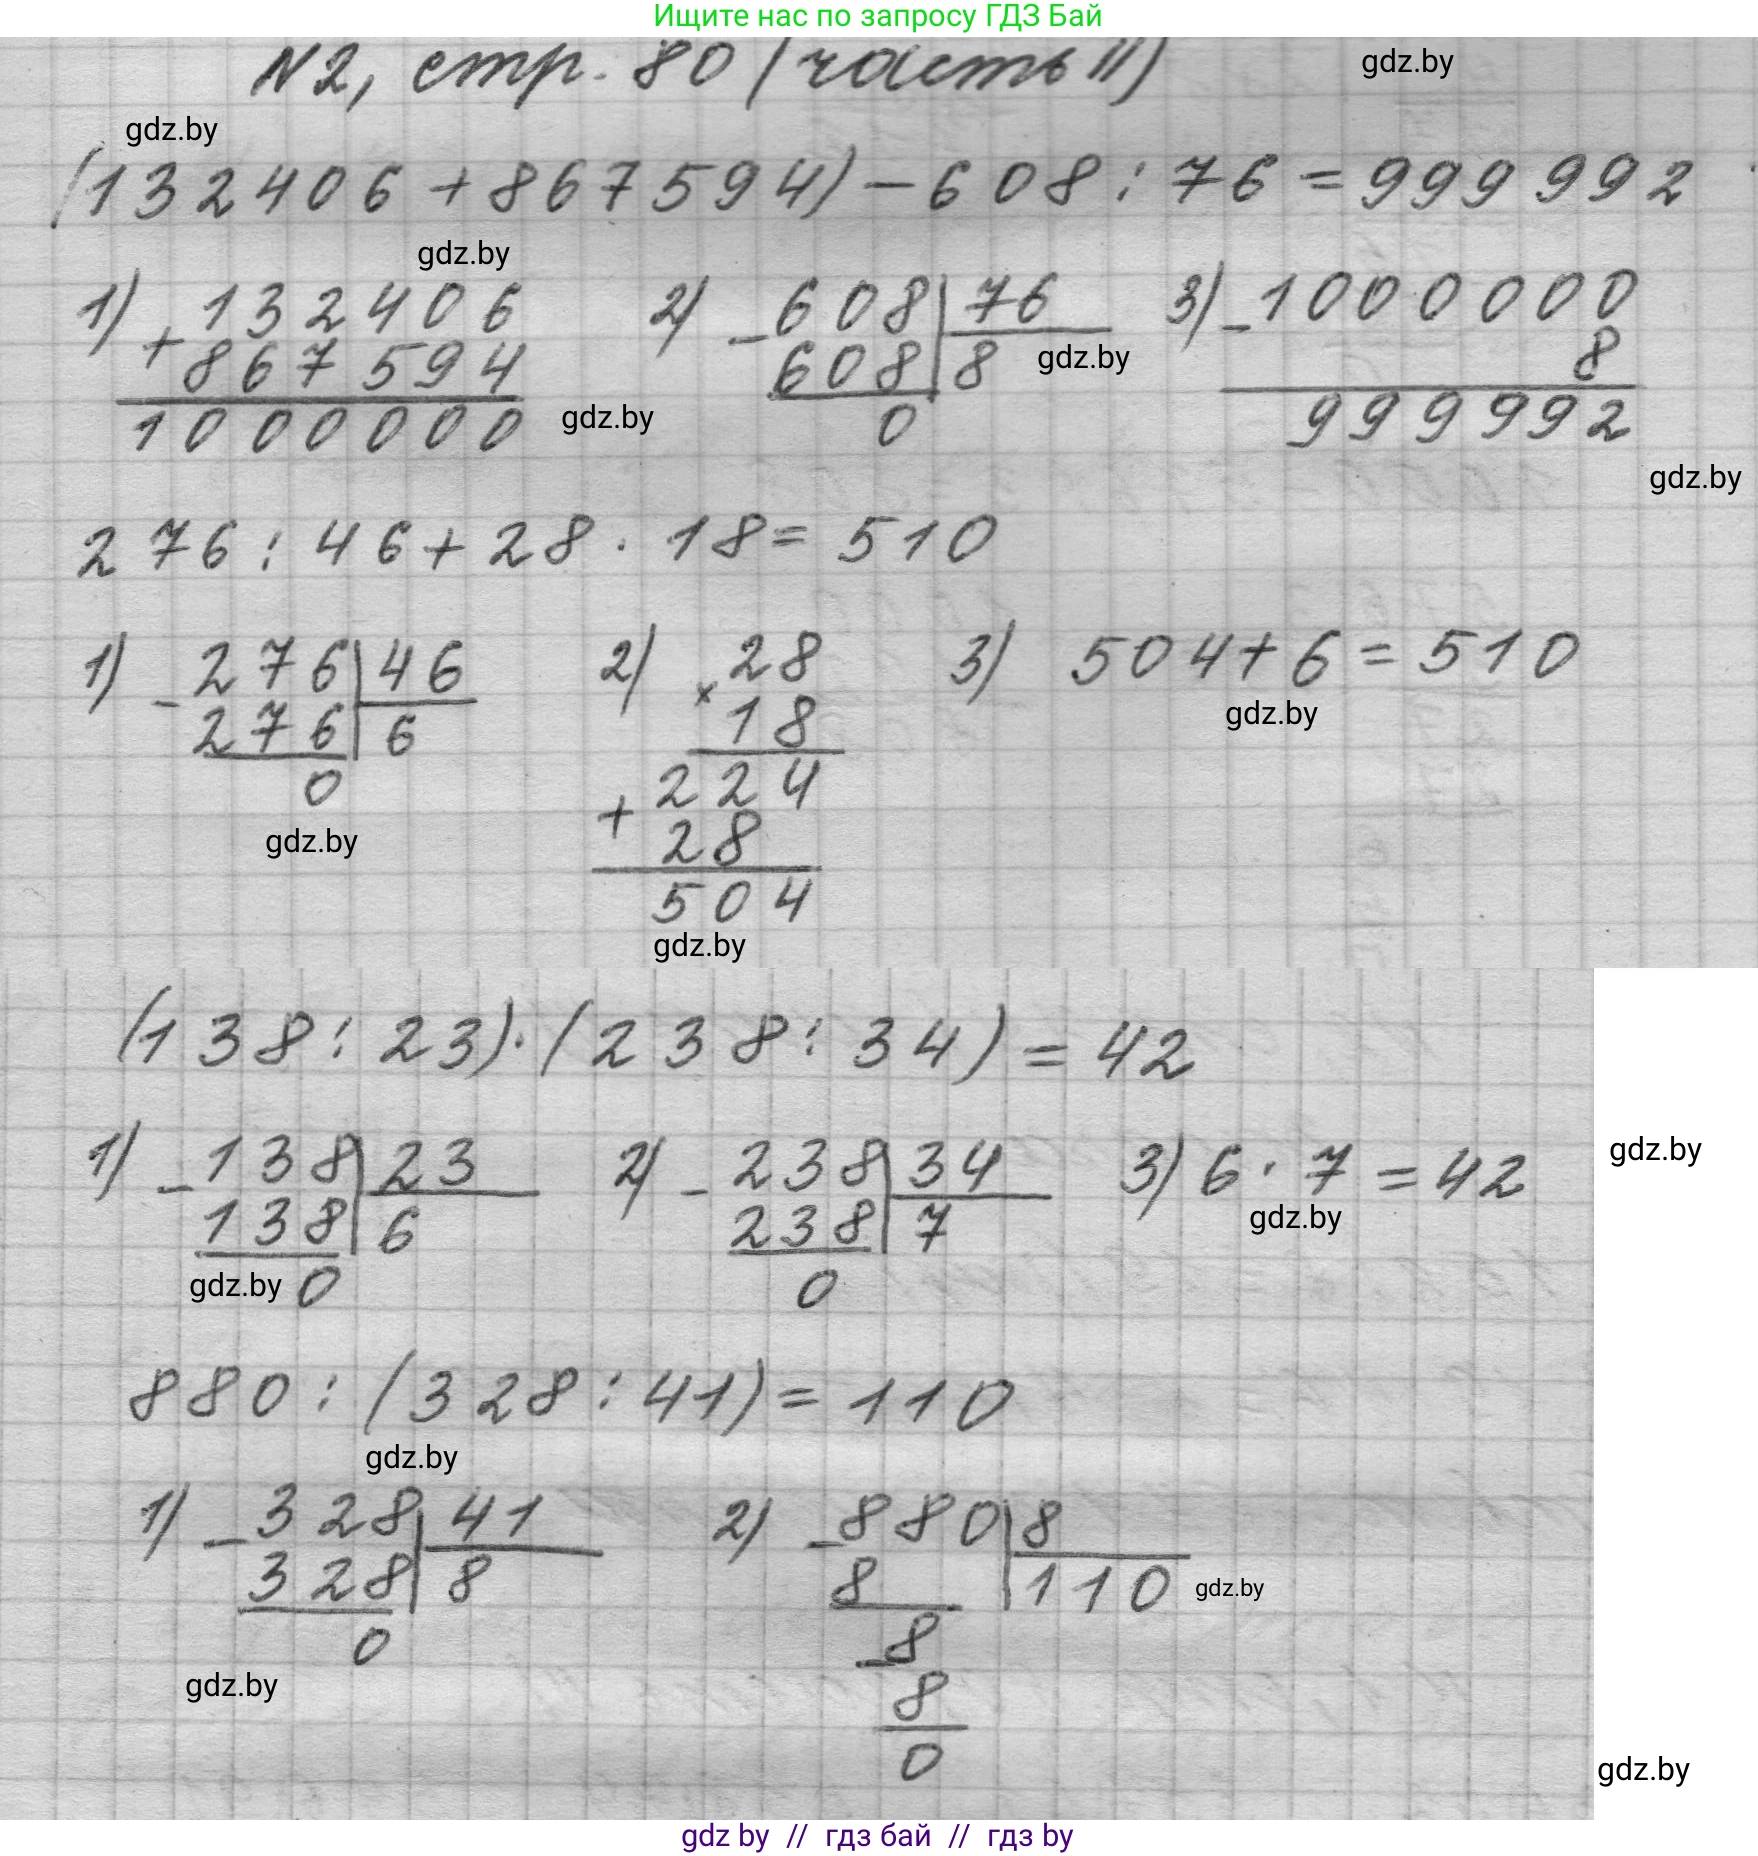 Ищите нас по запросу ГДЗ Бай
N2, стр. 80 (часть II)
gdz.by
gdz.by
(132406+867594)-608:76=999992
gdz.by
1) + 132406 2) - 608 76 3) - 1000000
867594 608 8 gdz.by 8
1000000 gdz.by 0 999992
gdz.by
276:46+28·18=510
1) - 276 46 2) × 28 3) 504+6=510
276 6 18 gdz.by
0 + 224
gdz.by 28
504
gdz.by
(138:23)·(238:34)=42
1) - 138 23 2) - 238 34 3) 6·7=42 gdz.by
138 6 238 7 gdz.by
gdz.by 0 0
880:(328:41)=110
gdz.by
1) - 328 41 2) - 880 8
328 8 8 110 gdz.by
0 - 8
gdz.by 8
0
gdz.by
gdz by // гдз бай // гдз by